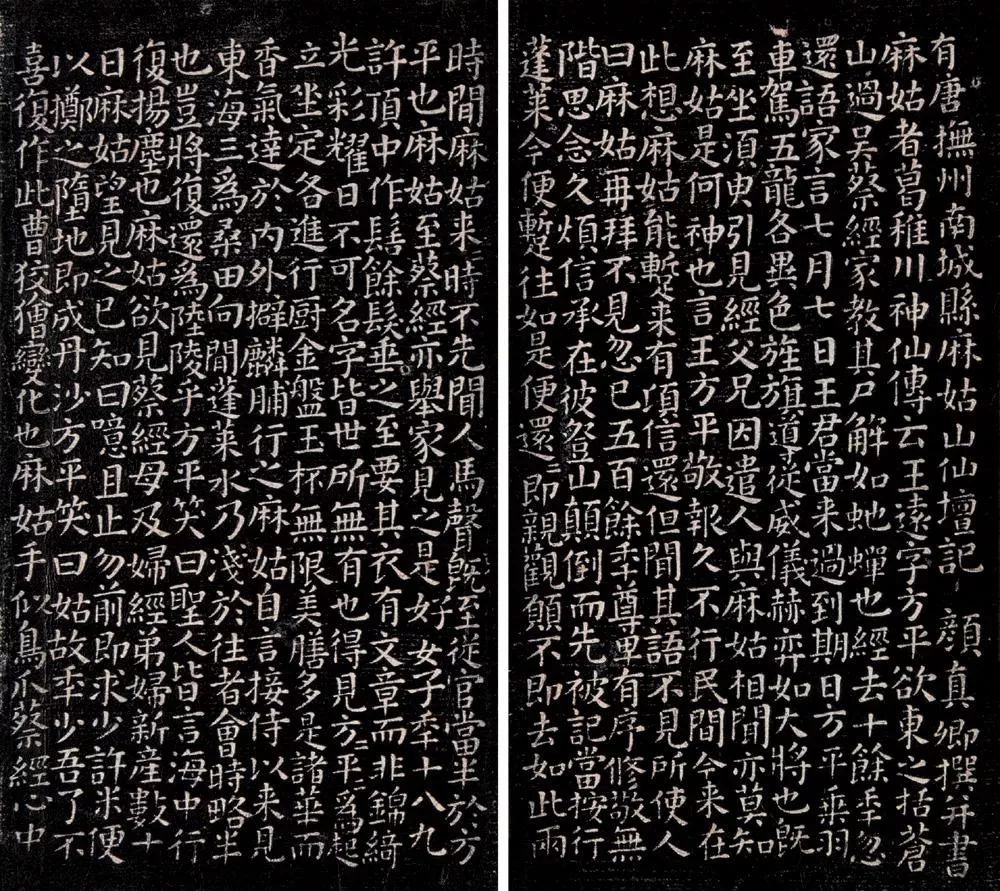 有唐撫州南城縣麻姑山仙壇記 顏真卿撰并書
麻姑者葛稚川神仙傳云王遠字方平欲東之括蒼
山過吳蔡經家教其尸解如虵蟬也經去十餘秊忽
還語家言七月七日王君當来過到期日方平乘羽
車駕五龍各異色旌旗導從威儀赫弈如大將也既
至坐須臾引見經父兄因遣人與麻姑相聞亦莫知
麻姑是何神也言王方平敬報久不行民間今来在
此想麻姑能蹔来有頃信還但聞其語不見所使人
曰麻姑再拜不見忽已五百餘秊尊卑有序修敬無
階思念久煩信承在彼登山顛倒而先被記當按行
蓬萊今便蹔往如是便還〻即親觀願不即去如此兩
時間麻姑来〻時不先聞人馬聲既至從官當半於方
平也麻姑至蔡經亦舉家見之是好女子秊十八九
許頂中作髻餘髮垂之至要其衣有文章而非錦綺
光彩耀日不可名字皆世所無有也得見方〻平〻為起
立坐定各進行廚金盤玉杯無限美膳多是諸華而
香氣達於內外擗麟脯行之麻姑自言接侍以来見
東海三為桑田向間蓬萊水乃淺於往者會時略半
也豈將復還為陸陵乎方平笑曰聖人皆言海中行
復揚塵也麻姑欲見蔡經母及婦經弟婦新產數十
日麻姑望見之已知曰噫且止勿前即求少許米便
以擲之墮地即成丹沙方平笑曰姑故秊少吾了不
喜復作此曹狡獪變化也麻姑手似鳥爪蔡經心中